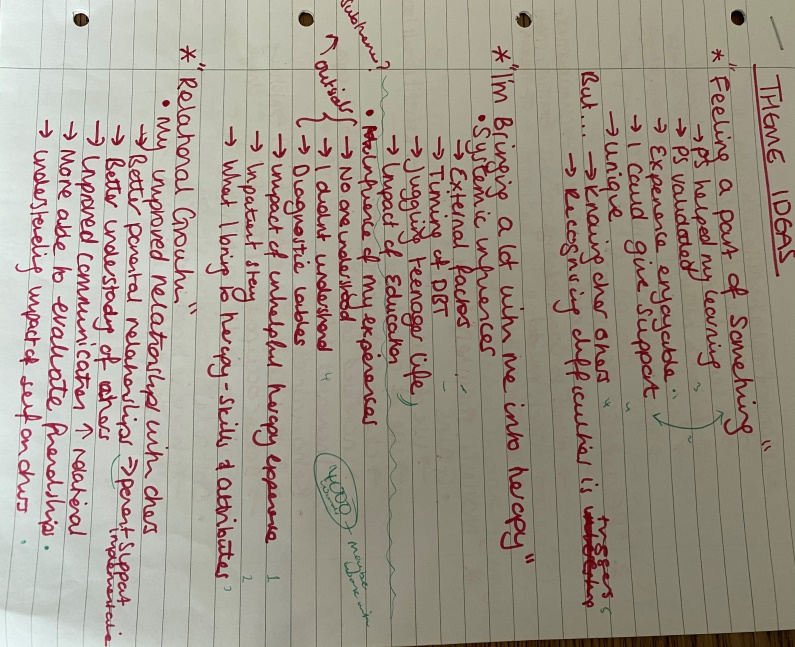 THEME IDEAS
* "Feeling a part of Something"
→ ps helped my learning
→ Ps validated
→ Experience enjoyable
→ I could give support
→ unique
But... → knowing other others
→ Recognising difficulties is triggers
* "I'm Bringing a lot with me into therapy"
• Systemic influences
→ External factors
→ Timing of DBT
→ Juggling teenager life
→ Impact of Education
• Influence of my experiences
Subtheme?
outside
→ No one understood
→ I didn't understand
→ Diagnostic lables
→ Impact of unhelpful therapy experience 1
→ Inpatient stay 2
→ What I bring to therapy - skills & attributes 3
* "Relational Growth"
• My improved relationships with others
→ Better parental relationships → parent support
→ Better understanding of others
→ Improved communication ↑ relational
→ More able to evaluate friendships.
→ understanding impact of self on others